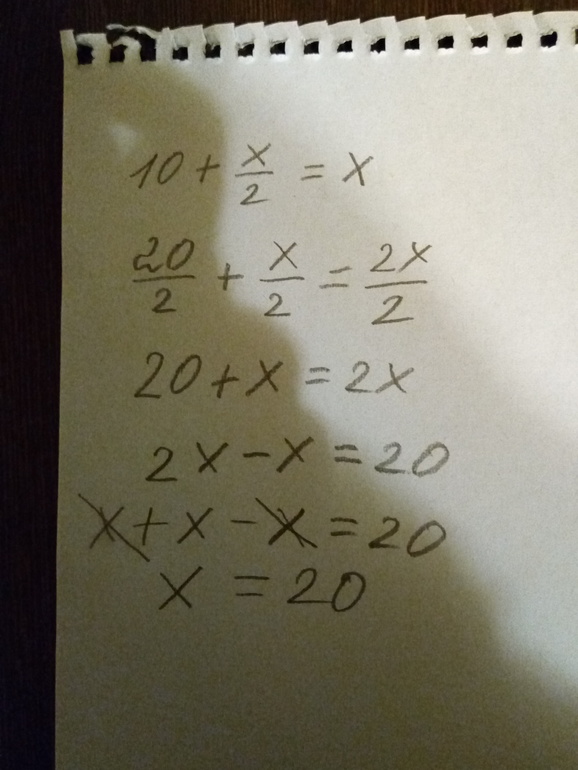 10 + x/2 = x
20/2 + x/2 = 2x/2
20 + x = 2x
2x - x = 20
x + x - x = 20
x = 20